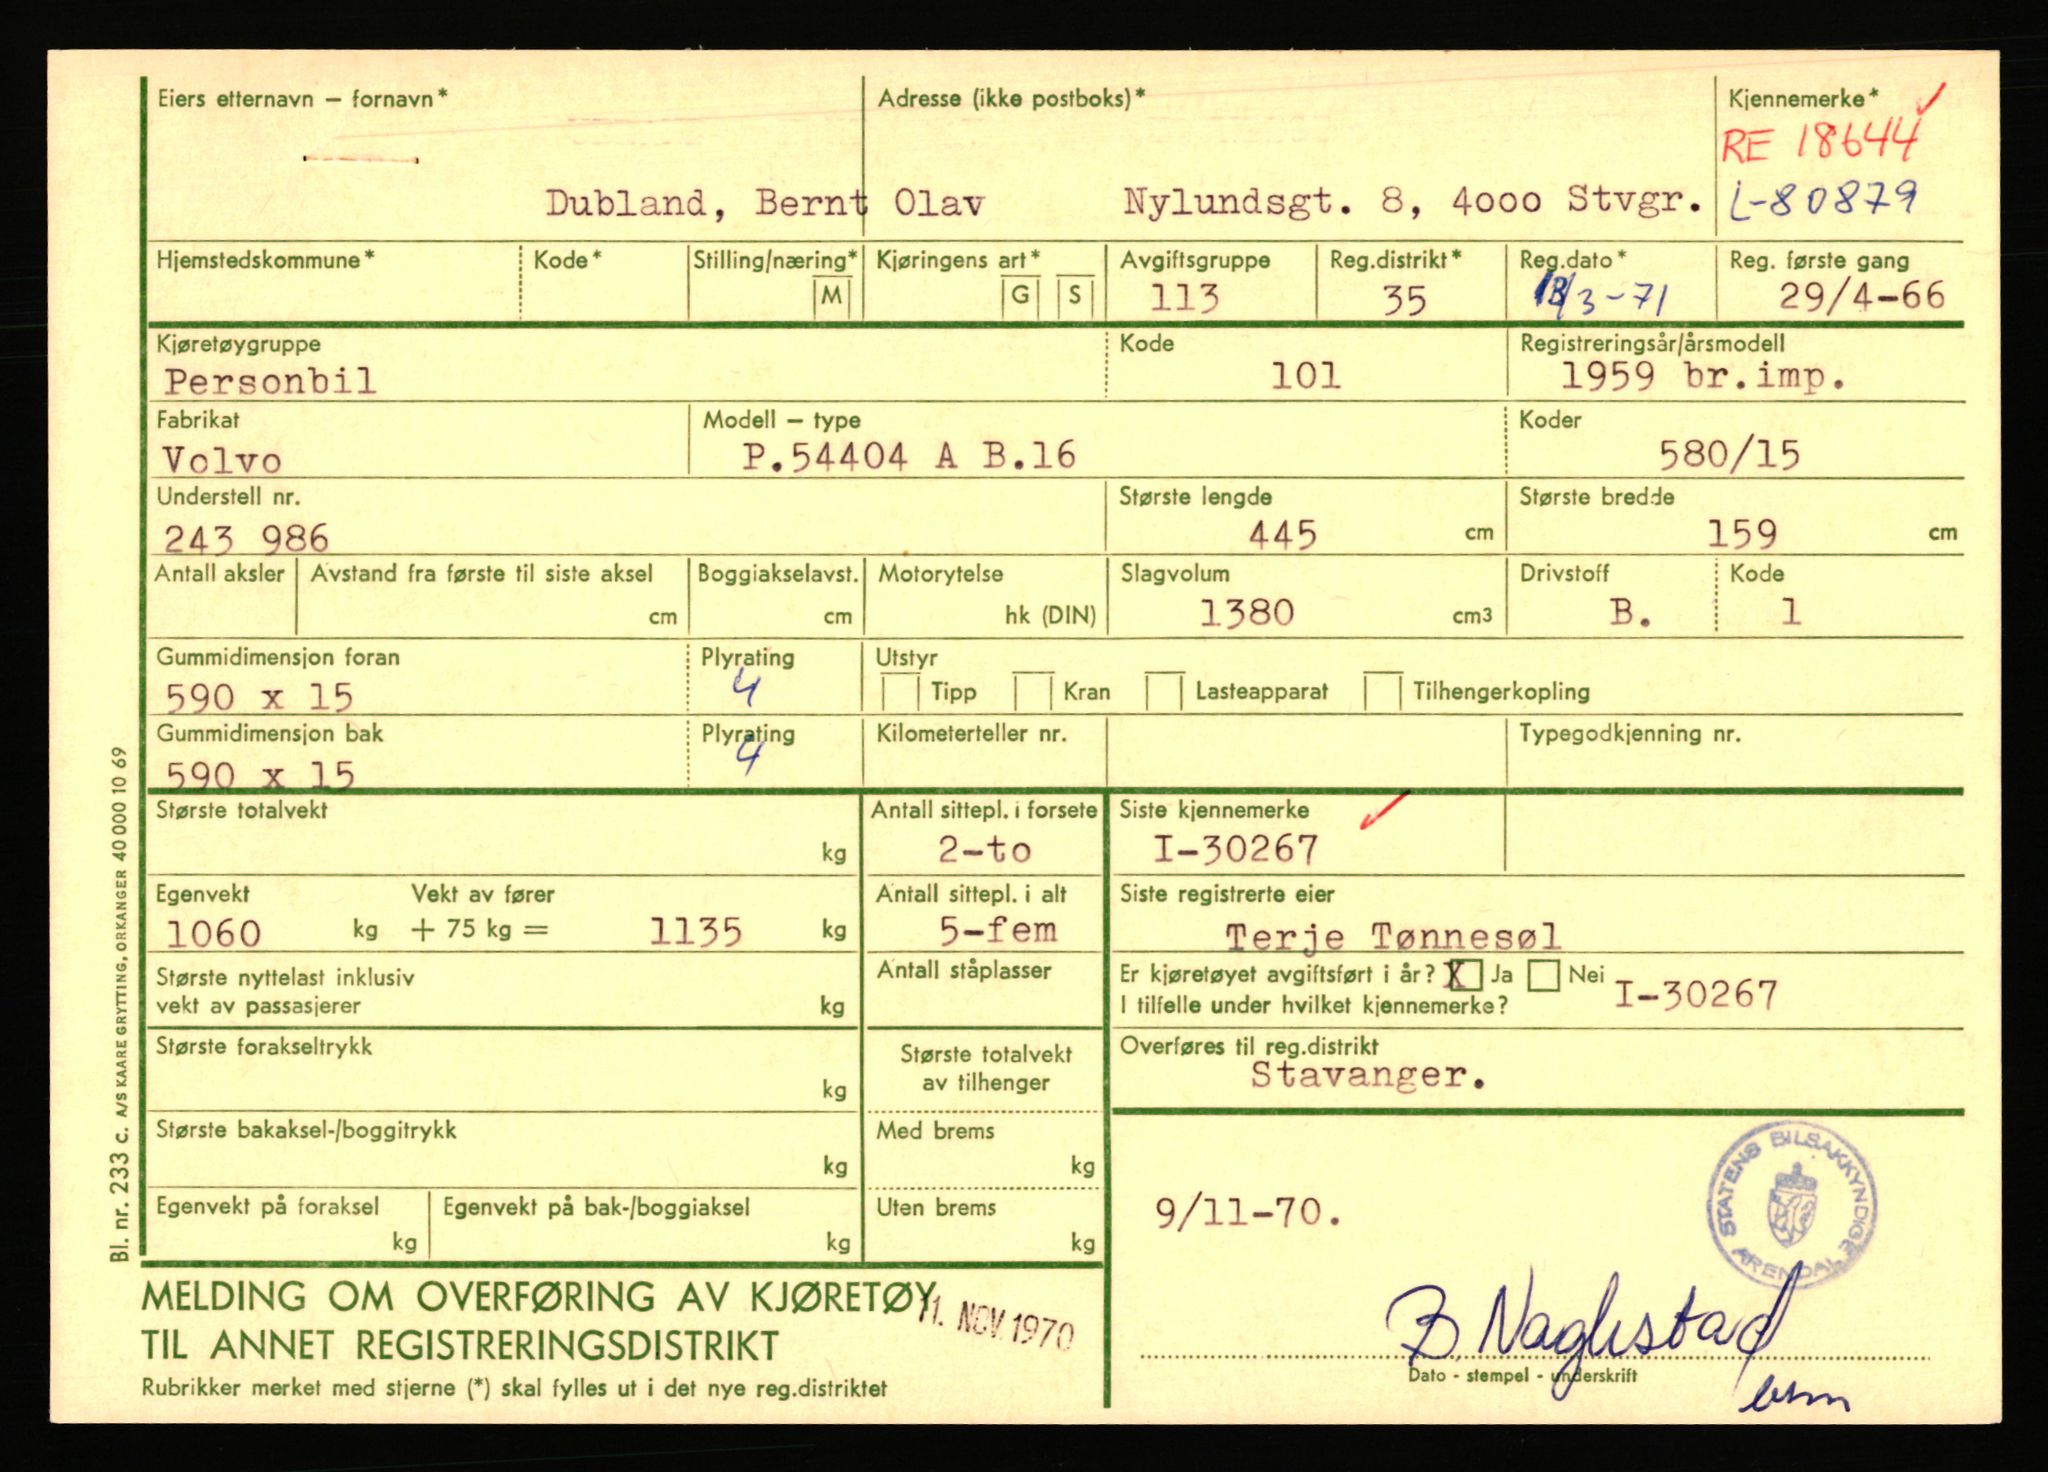 Eiers etternavn – fornavn* Adresse (ikke postboks)* Kjennemerke*
RE 18644
Dubland, Bernt Olav Nylundsgt. 8, 4000 Stvgr. L-80879
Hjemstedskommune* Kode* Stilling/næring* M Kjøringens art* G S Avgiftsgruppe Reg.distrikt* Reg.dato* Reg. første gang
113 35 /3-71 29/4-66
Kjøretøygruppe Kode Registreringsår/årsmodell
Personbil 101 1959 br.imp.
Fabrikat Modell – type Koder
Volvo P.54404 A B.16 580/15
Understell nr. Største lengde Største bredde
243 986 445 cm 159 cm
Antall aksler Avstand fra første til siste aksel Boggiakselavst. Motorytelse Slagvolum Drivstoff Kode
cm cm hk (DIN) 1380 cm3 B. 1
Gummidimensjon foran Plyrating Utstyr
590 x 15 4 Tipp Kran Lasteapparat Tilhengerkopling
Gummidimensjon bak Plyrating Kilometerteller nr. Typegodkjenning nr.
590 x 15 4
Største totalvekt Antall sittepl. i forsete Siste kjennemerke
kg 2-to I-30267
Egenvekt Vekt av fører Antall sittepl. i alt Siste registrerte eier
1060 kg + 75 kg = 1135 kg 5-fem Terje Tønnesøl
Største nyttelast inklusiv Antall ståplasser Er kjøretøyet avgiftsført i år? X Ja Nei
vekt av passasjerer kg I tilfelle under hvilket kjennemerke? I-30267
Største forakseltrykk Største totalvekt Overføres til reg.distrikt
kg av tilhenger Stavanger.
Største bakaksel-/boggitrykk Med brems
kg kg
Egenvekt på foraksel Egenvekt på bak-/boggiaksel Uten brems
kg kg kg
9/11-70.
STATENS BILSAKKYNDIGE ARENDAL
MELDING OM OVERFØRING AV KJØRETØY
TIL ANNET REGISTRERINGSDISTRIKT
11. NOV. 1970
Rubrikker merket med stjerne (*) skal fylles ut i det nye reg.distriktet
B. Naglestad
Dato - stempel - underskrift
Bl. nr. 233 c. A/S KAARE GRYTTING, ORKANGER 40 000 10 69